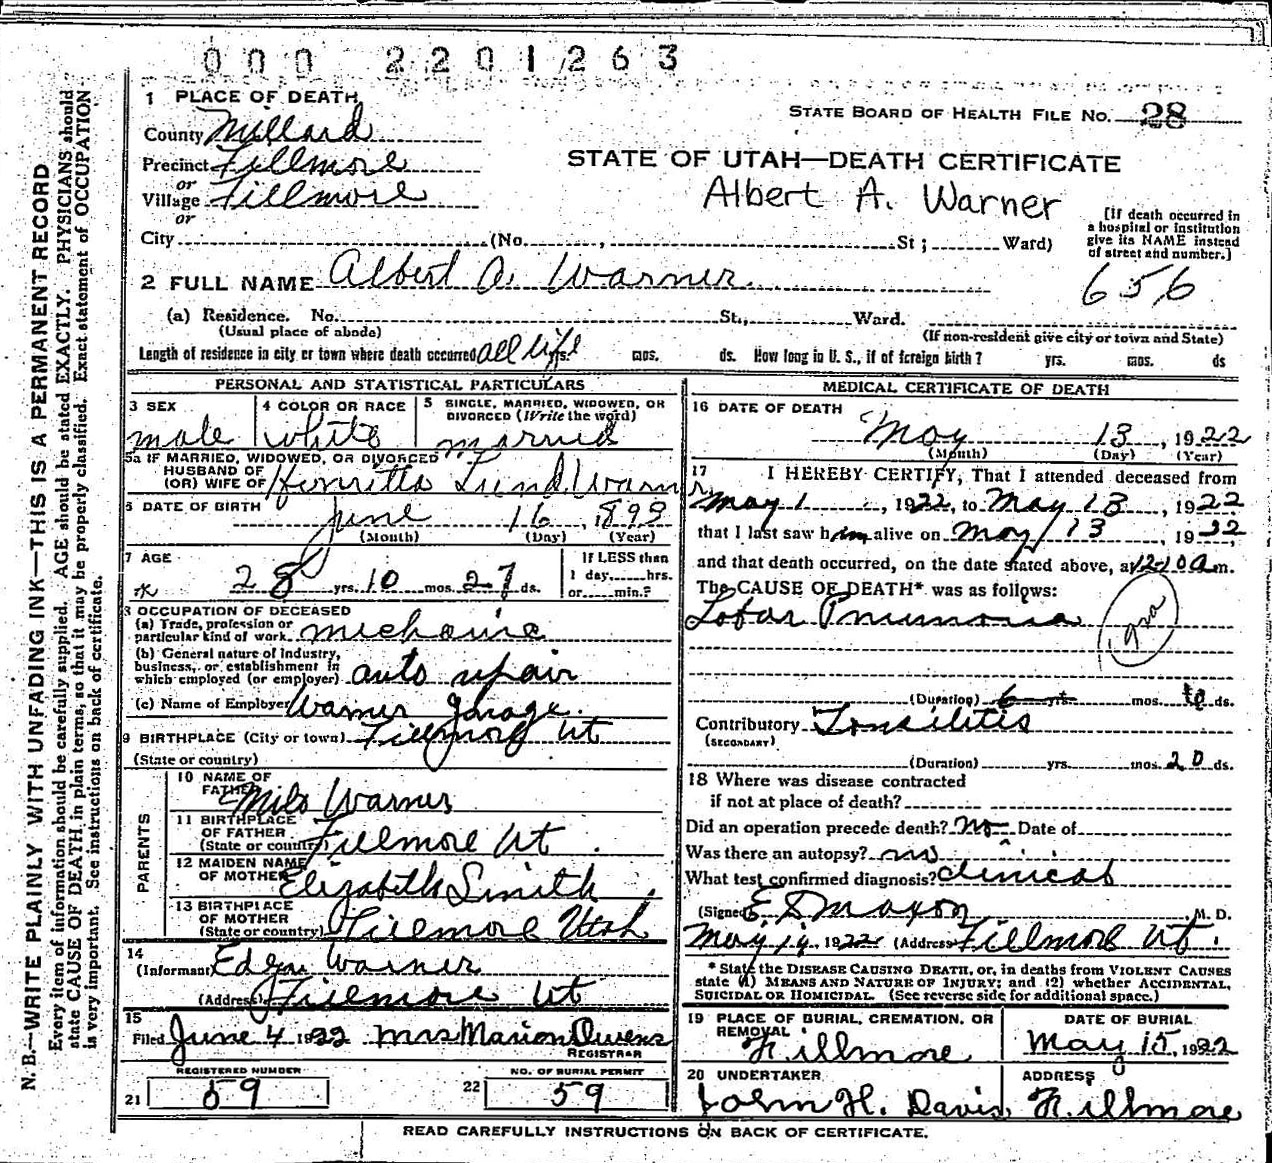 000 2201263
1 PLACE OF DEATH
STATE BOARD OF HEALTH FILE NO. 28
County Millard
Precinct Fillmore
or
Village Fillmore
or
STATE OF UTAH—DEATH CERTIFICATE
Albert A. Warner
City (No. , St; Ward)
[If death occurred in
a hospital or institution
give its NAME instead
of street and number.]
2 FULL NAME Albert A. Warner
656
(a) Residence. No. St., Ward.
(Usual place of abode) (If non-resident give city or town and State)
Length of residence in city or town where death occurred all life yrs. mos. ds. How long in U. S., if of foreign birth? yrs. mos. ds
PERSONAL AND STATISTICAL PARTICULARS
3 SEX
male
4 COLOR OR RACE
white
5 SINGLE, MARRIED, WIDOWED, OR
DIVORCED (Write the word)
married
5a IF MARRIED, WIDOWED, OR DIVORCED
HUSBAND OF
(OR) WIFE OF Henritta Lund Warner
6 DATE OF BIRTH
June 16, 1893
(Month) (Day) (Year)
7 AGE
28 yrs. 10 mos. 27 ds.
If LESS than
1 day, hrs.
or min.?
8 OCCUPATION OF DECEASED
(a) Trade, profession or
particular kind of work michanic
(b) General nature of industry,
business, or establishment in
which employed (or employer) auto repair
(c) Name of Employer Warner Garage.
9 BIRTHPLACE (City or town) Fillmore Ut
(State or country)
PARENTS
10 NAME OF
FATHER Milo Warner
11 BIRTHPLACE
OF FATHER
(State or country) Fillmore Ut.
12 MAIDEN NAME
OF MOTHER Elizabeth Smith
13 BIRTHPLACE
OF MOTHER
(State or country) Fillmore Utah
14
(Informant) Edgar Warner
(Address) Fillmore Ut
15
Filed June 4 1922 Mrs Marion Owens
REGISTRAR
REGISTERED NUMBER
21 59
NO. OF BURIAL PERMIT
22 59
MEDICAL CERTIFICATE OF DEATH
16 DATE OF DEATH
May 13, 1922
(Month) (Day) (Year)
17 I HEREBY CERTIFY, That I attended deceased from
May 1, 1922, to May 13, 1922
that I last saw him alive on May 13 1922,
and that death occurred, on the date stated above, at 12-10 a m.
The CAUSE OF DEATH* was as follows:
Lobar Pnumonia
(Duration) 6 yrs. mos. 10 ds.
Contributory Tonsilitis
(SECONDARY)
(Duration) yrs. mos. 20 ds.
18 Where was disease contracted
if not at place of death?
Did an operation precede death? no Date of
Was there an autopsy? no
What test confirmed diagnosis? clinical
(Signed) E S Maxon, M. D.
May 14, 1922 (Address) Fillmore Ut.
* State the DISEASE CAUSING DEATH, or, in deaths from VIOLENT CAUSES
state (1) MEANS AND NATURE OF INJURY; and (2) whether ACCIDENTAL,
SUICIDAL OR HOMICIDAL. (See reverse side for additional space.)
19 PLACE OF BURIAL, CREMATION, OR
REMOVAL
Fillmore
DATE OF BURIAL
May 15, 1922
20 UNDERTAKER
John H. Davis
ADDRESS
Fillmore
READ CAREFULLY INSTRUCTIONS ON BACK OF CERTIFICATE.
N. B.—WRITE PLAINLY WITH UNFADING INK—THIS IS A PERMANENT RECORD
Every item of information should be carefully supplied. AGE should be stated EXACTLY. PHYSICIANS should
state CAUSE OF DEATH in plain terms, so that it may be properly classified. Exact statement of OCCUPATION
is very important. See instructions on back of certificate.